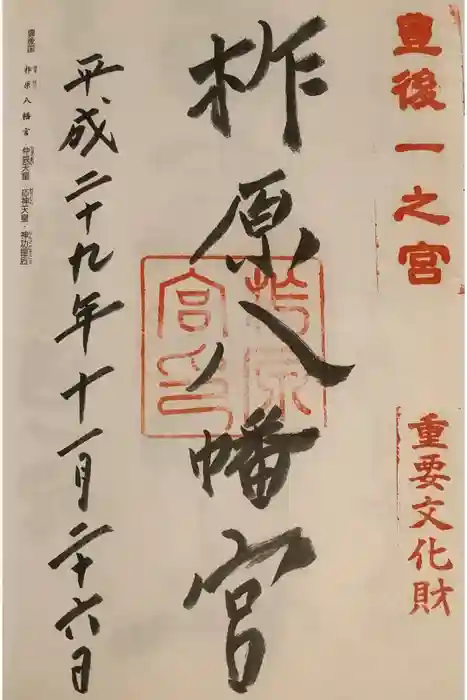 豊後一之宮
重要文化財
柞原八幡宮
平成二十九年十一月二十六日
豊後国 柞原八幡宮 仲哀天皇・応神天皇・神功皇后